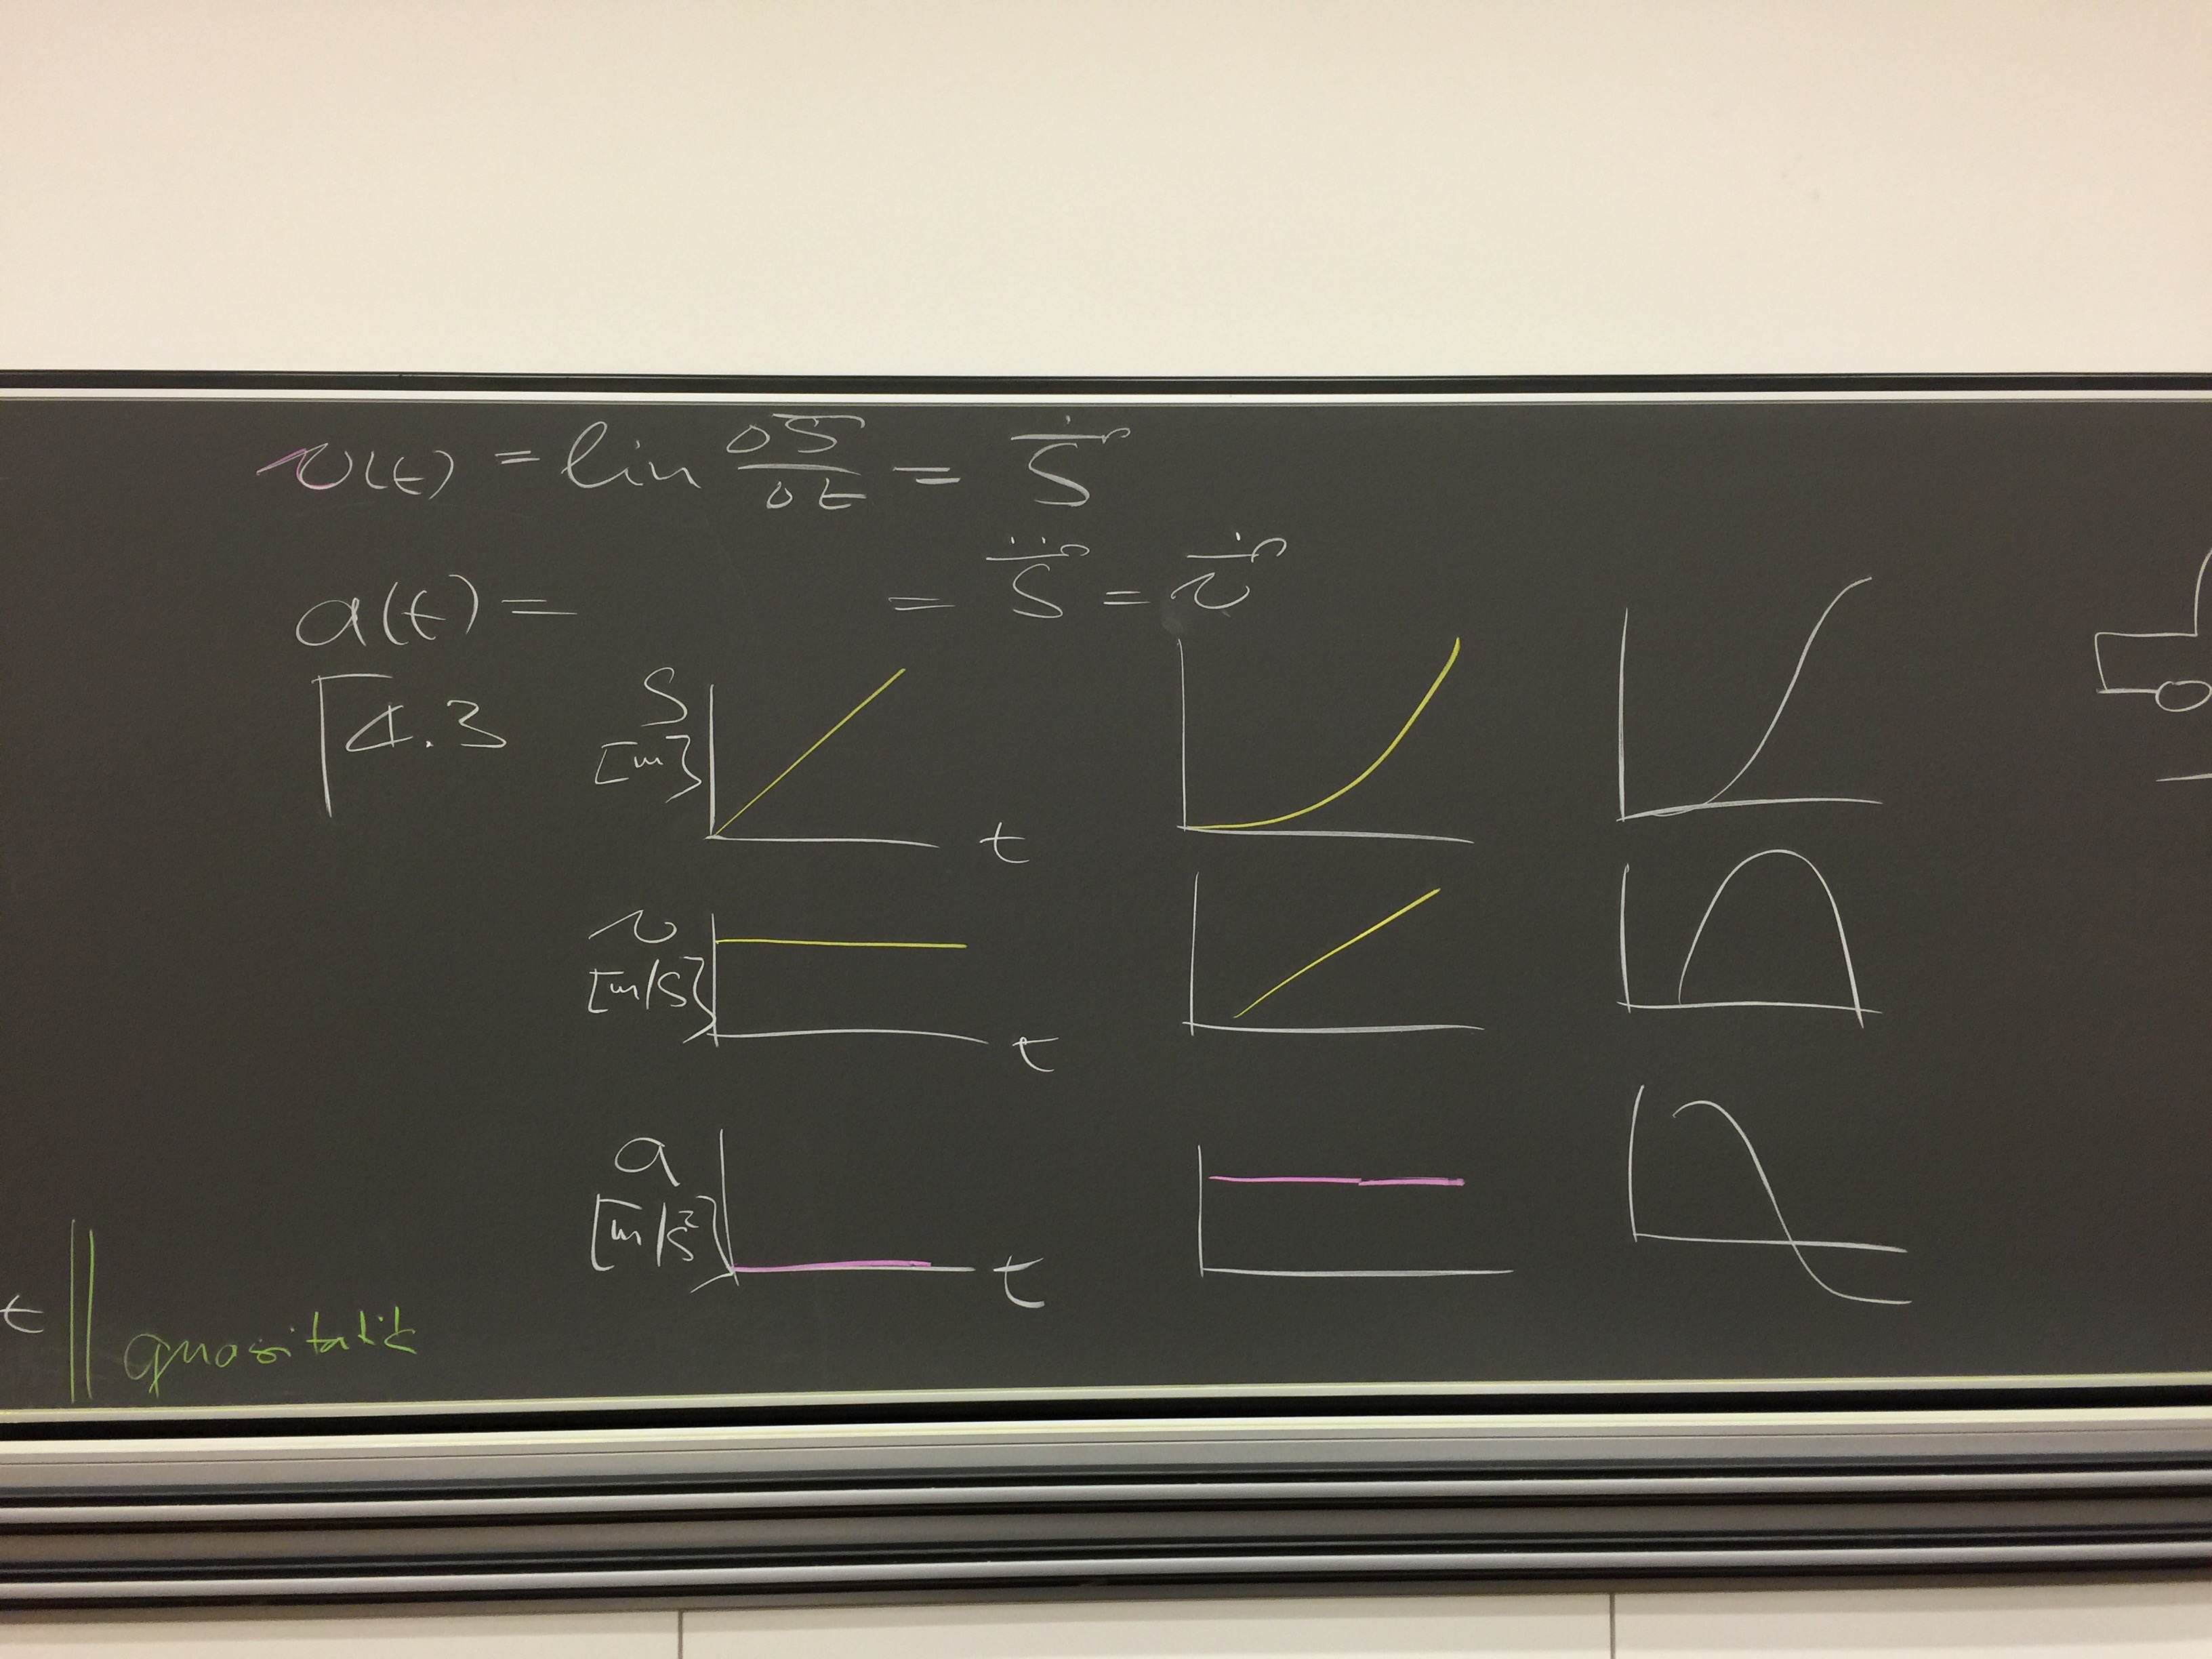 v(t) = lin Δs⃗/Δt = ṡ⃗
a(t) = = s̈⃗ = v̇⃗
4.3
S
[m]
t
v
[m/s]
t
a
[m/s²]
t
t
quasitatik